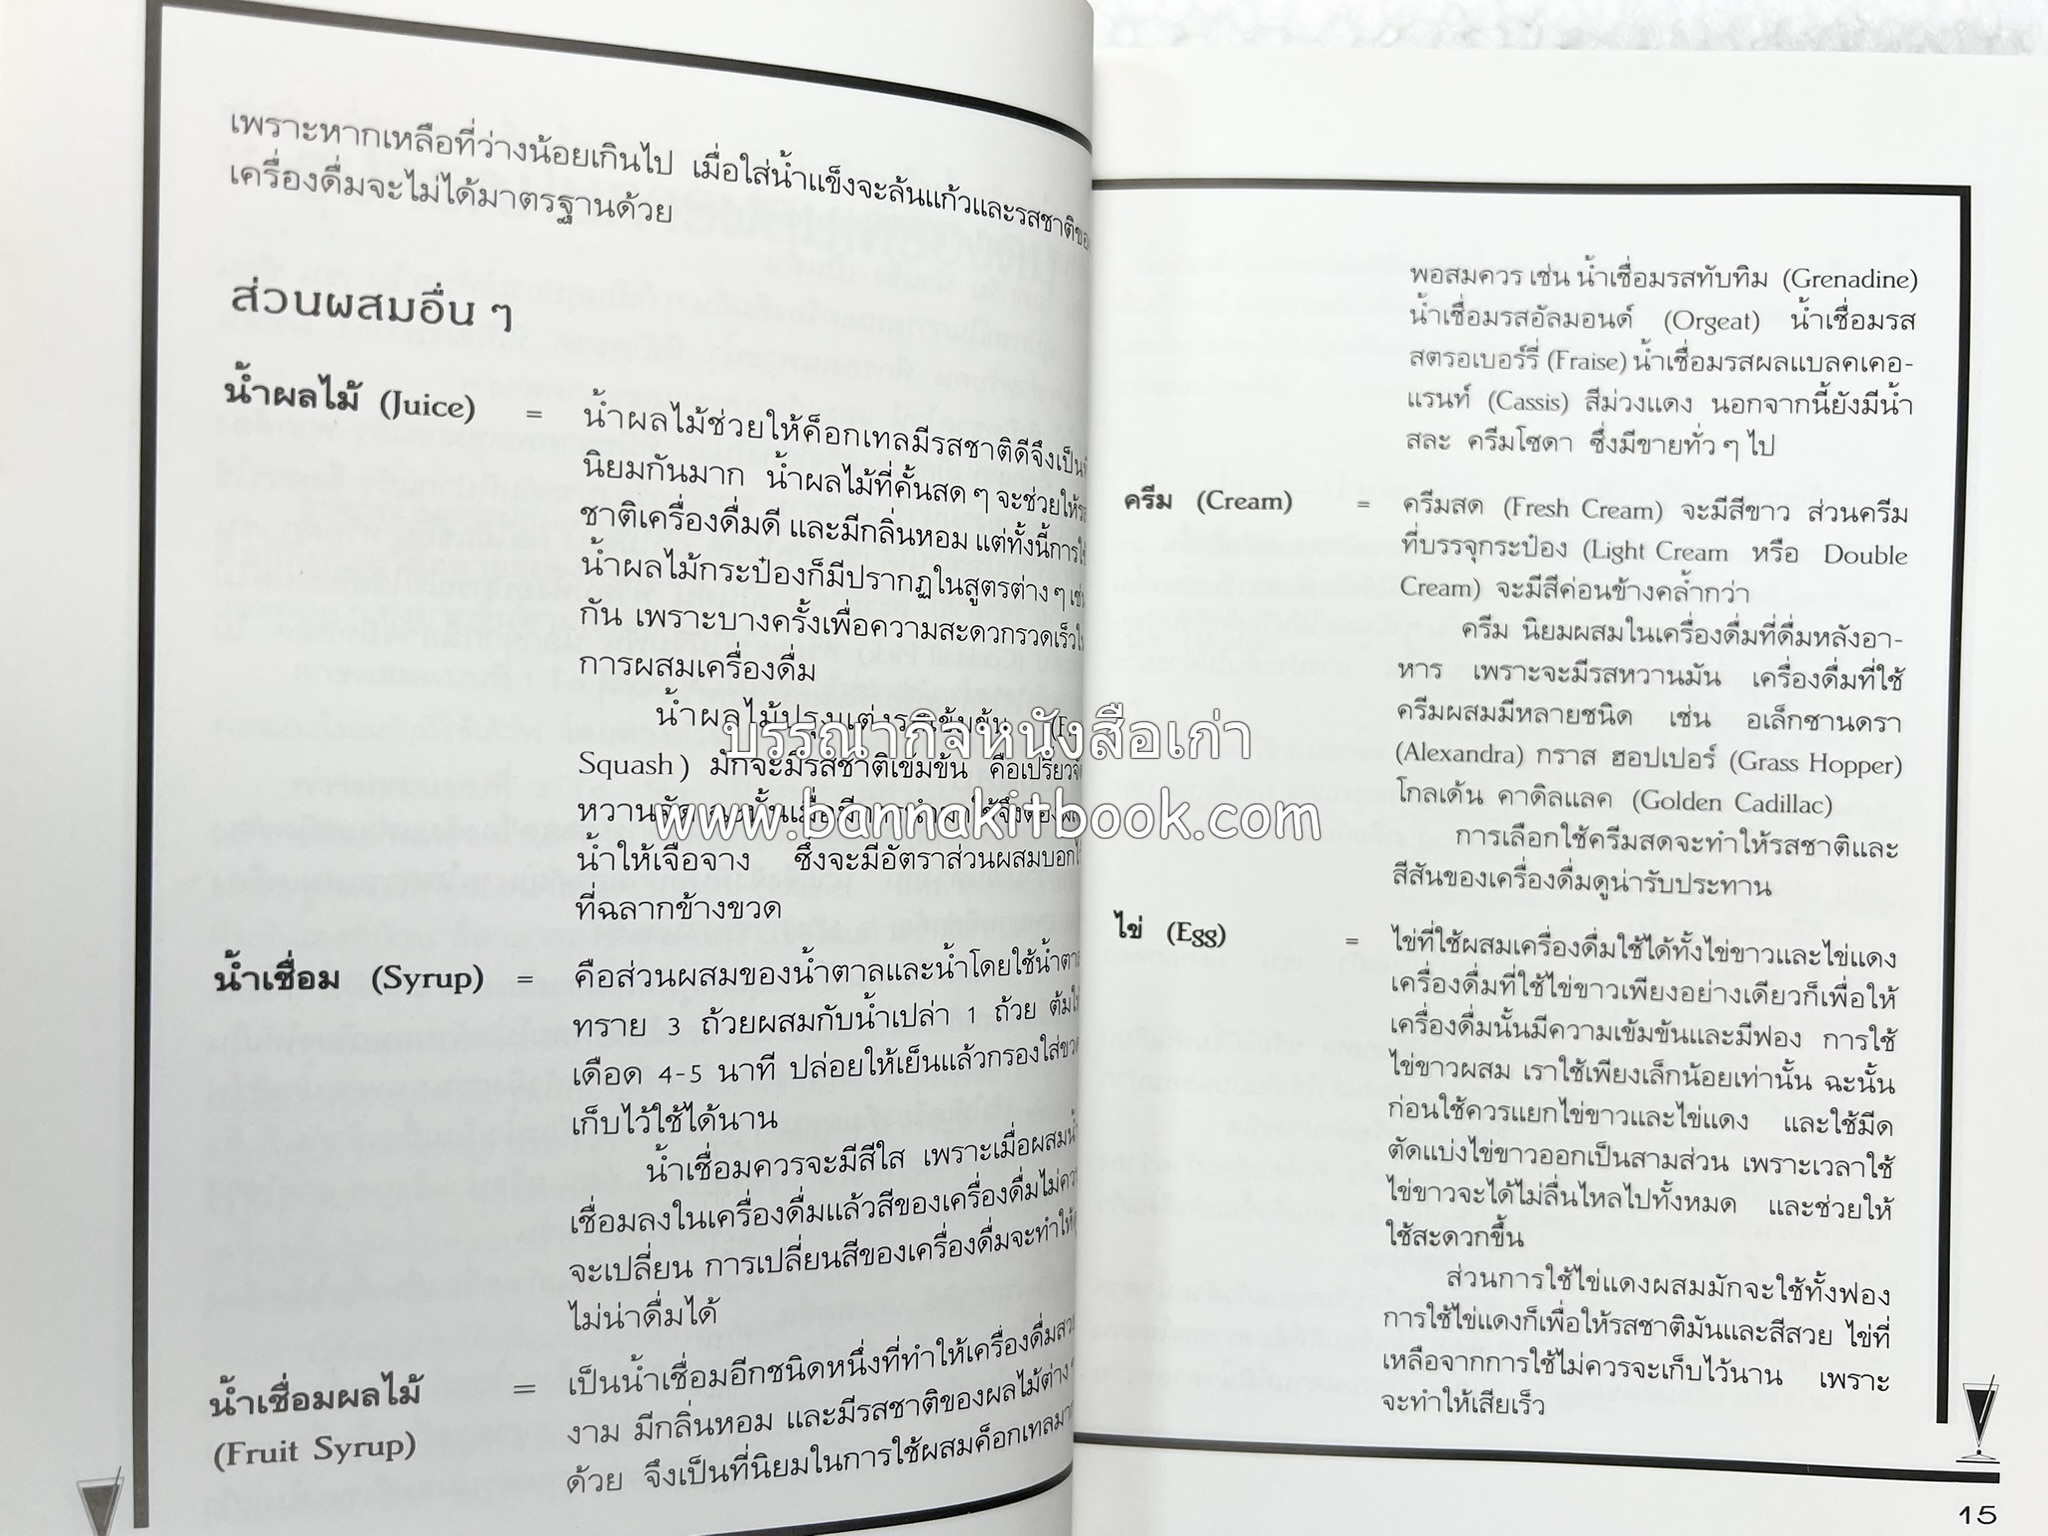 เพราะหากเหลือที่ว่างน้อยเกินไป เมื่อใส่น้ำแข็งจะล้นแก้วและรสชาติของ
เครื่องดื่มจะไม่ได้มาตรฐานด้วย
ส่วนผสมอื่น ๆ
น้ำผลไม้ (Juice) = น้ำผลไม้ช่วยให้ค็อกเทลมีรสชาติดีจึงเป็น
นิยมกันมาก น้ำผลไม้ที่คั้นสด ๆ จะช่วยให้รส
ชาติเครื่องดื่มดี และมีกลิ่นหอม แต่ทั้งนี้การใช้
น้ำผลไม้กระป๋องก็มีปรากฏในสูตรต่าง ๆ เช่น
กัน เพราะบางครั้งเพื่อความสะดวกรวดเร็วใน
การผสมเครื่องดื่ม
น้ำผลไม้ปรุงแต่งรสเข้มข้น
Squash) มักจะมีรสชาติเข้มข้น คือเปรี้ยวจัด
หวานจัด ฉะนั้นเมื่อมีการนำมาใช้จึงต้องผสม
น้ำให้เจือจาง ซึ่งจะมีอัตราส่วนผสมบอกไว้
ที่ฉลากข้างขวด
น้ำเชื่อม (Syrup) = คือส่วนผสมของน้ำตาลและน้ำโดยใช้น้ำตาล
ทราย 3 ถ้วยผสมกับน้ำเปล่า 1 ถ้วย ต้มให้
เดือด 4-5 นาที ปล่อยให้เย็นแล้วกรองใส่ขวด
เก็บไว้ใช้ได้นาน
น้ำเชื่อมควรจะมีสีใส เพราะเมื่อผสมน้ำ
เชื่อมลงในเครื่องดื่มแล้วสีของเครื่องดื่มไม่ควร
จะเปลี่ยน การเปลี่ยนสีของเครื่องดื่มจะทำให้ดู
ไม่น่าดื่มได้
น้ำเชื่อมผลไม้ = เป็นน้ำเชื่อมอีกชนิดหนึ่งที่ทำให้เครื่องดื่มสวย
(Fruit Syrup) งาม มีกลิ่นหอม และมีรสชาติของผลไม้ต่าง ๆ
ด้วย จึงเป็นที่นิยมในการใช้ผสมค็อกเทลมาก
พอสมควร เช่น น้ำเชื่อมรสทับทิม (Grenadine)
น้ำเชื่อมรสอัลมอนด์ (Orgeat) น้ำเชื่อมรส
สตรอเบอร์รี่ (Fraise) น้ำเชื่อมรสผลแบลคเคอ-
แรนท์ (Cassis) สีม่วงแดง นอกจากนี้ยังมีน้ำ
สละ ครีมโซดา ซึ่งมีขายทั่ว ๆ ไป
ครีม (Cream) = ครีมสด (Fresh Cream) จะมีสีขาว ส่วนครีม
ที่บรรจุกระป๋อง (Light Cream หรือ Double
Cream) จะมีสีค่อนข้างคล้ำกว่า
ครีม นิยมผสมในเครื่องดื่มที่ดื่มหลังอา-
หาร เพราะจะมีรสหวานมัน เครื่องดื่มที่ใช้
ครีมผสมมีหลายชนิด เช่น อเล็กซานดรา
(Alexandra) กราส ฮอปเปอร์ (Grass Hopper)
โกลเด้น คาดิลแลค (Golden Cadillac)
การเลือกใช้ครีมสดจะทำให้รสชาติและ
สีสันของเครื่องดื่มดูน่ารับประทาน
ไข่ (Egg) = ไข่ที่ใช้ผสมเครื่องดื่มใช้ได้ทั้งไข่ขาวและไข่แดง
เครื่องดื่มที่ใช้ไข่ขาวเพียงอย่างเดียวก็เพื่อให้
เครื่องดื่มนั้นมีความเข้มข้นและมีฟอง การใช้
ไข่ขาวผสม เราใช้เพียงเล็กน้อยเท่านั้น ฉะนั้น
ก่อนใช้ควรแยกไข่ขาวและไข่แดง และใช้มีด
ตัดแบ่งไข่ขาวออกเป็นสามส่วน เพราะเวลาใช้
ไข่ขาวจะได้ไม่ลื่นไหลไปทั้งหมด และช่วยให้
ใช้สะดวกขึ้น
ส่วนการใช้ไข่แดงผสมมักจะใช้ทั้งฟอง
การใช้ไข่แดงก็เพื่อให้รสชาติมันและสีสวย ไข่ที่
เหลือจากการใช้ไม่ควรจะเก็บไว้นาน เพราะ
จะทำให้เสียเร็ว
15
บรรณากิจหนังสือเก่า
www.bannakitbook.com